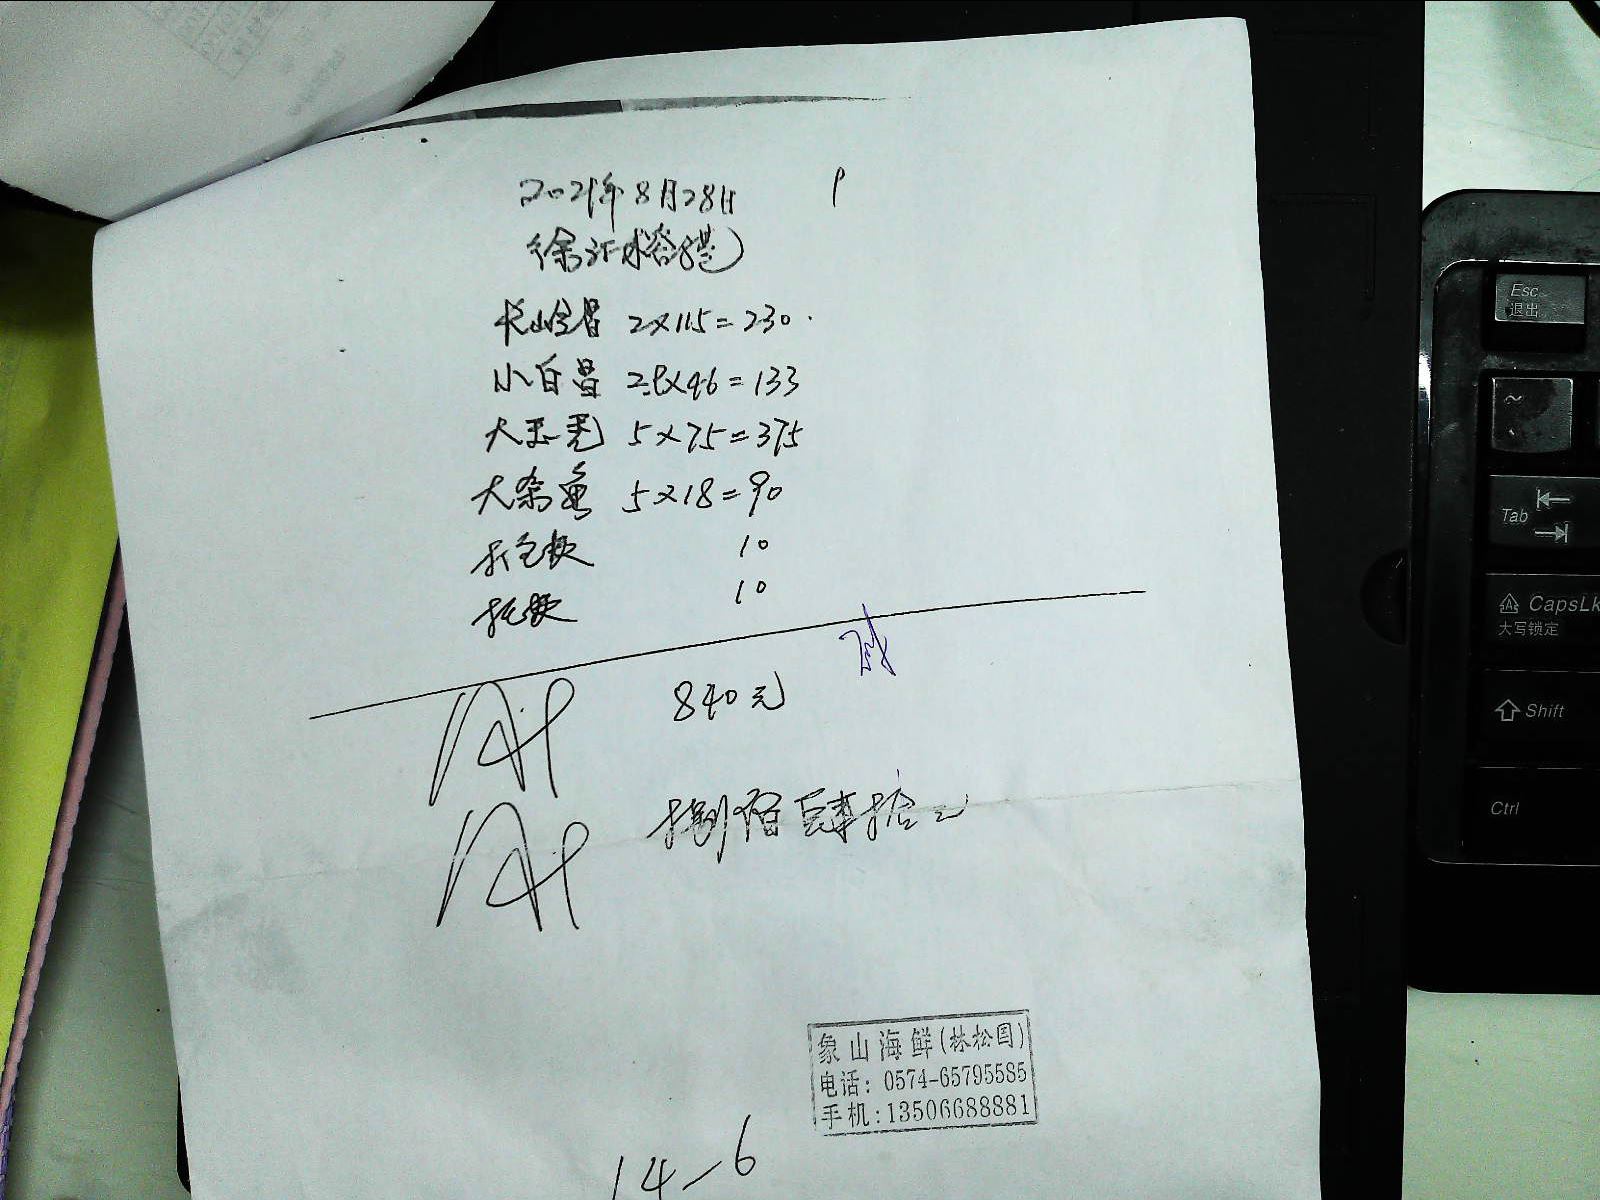 2021年8月28日
2×115=230
小白昌 2.9×46=133
大玉秃 5×75=375
大杂鱼 5×18=90
打包费 10
托费 10
840元
捌佰肆拾元
象山海鲜(林松国)
电话: 0574-65795585
手机:13506688881
14-6
Esc
退出
~
Tab
CapsLk
大写锁定
Shift
Ctrl